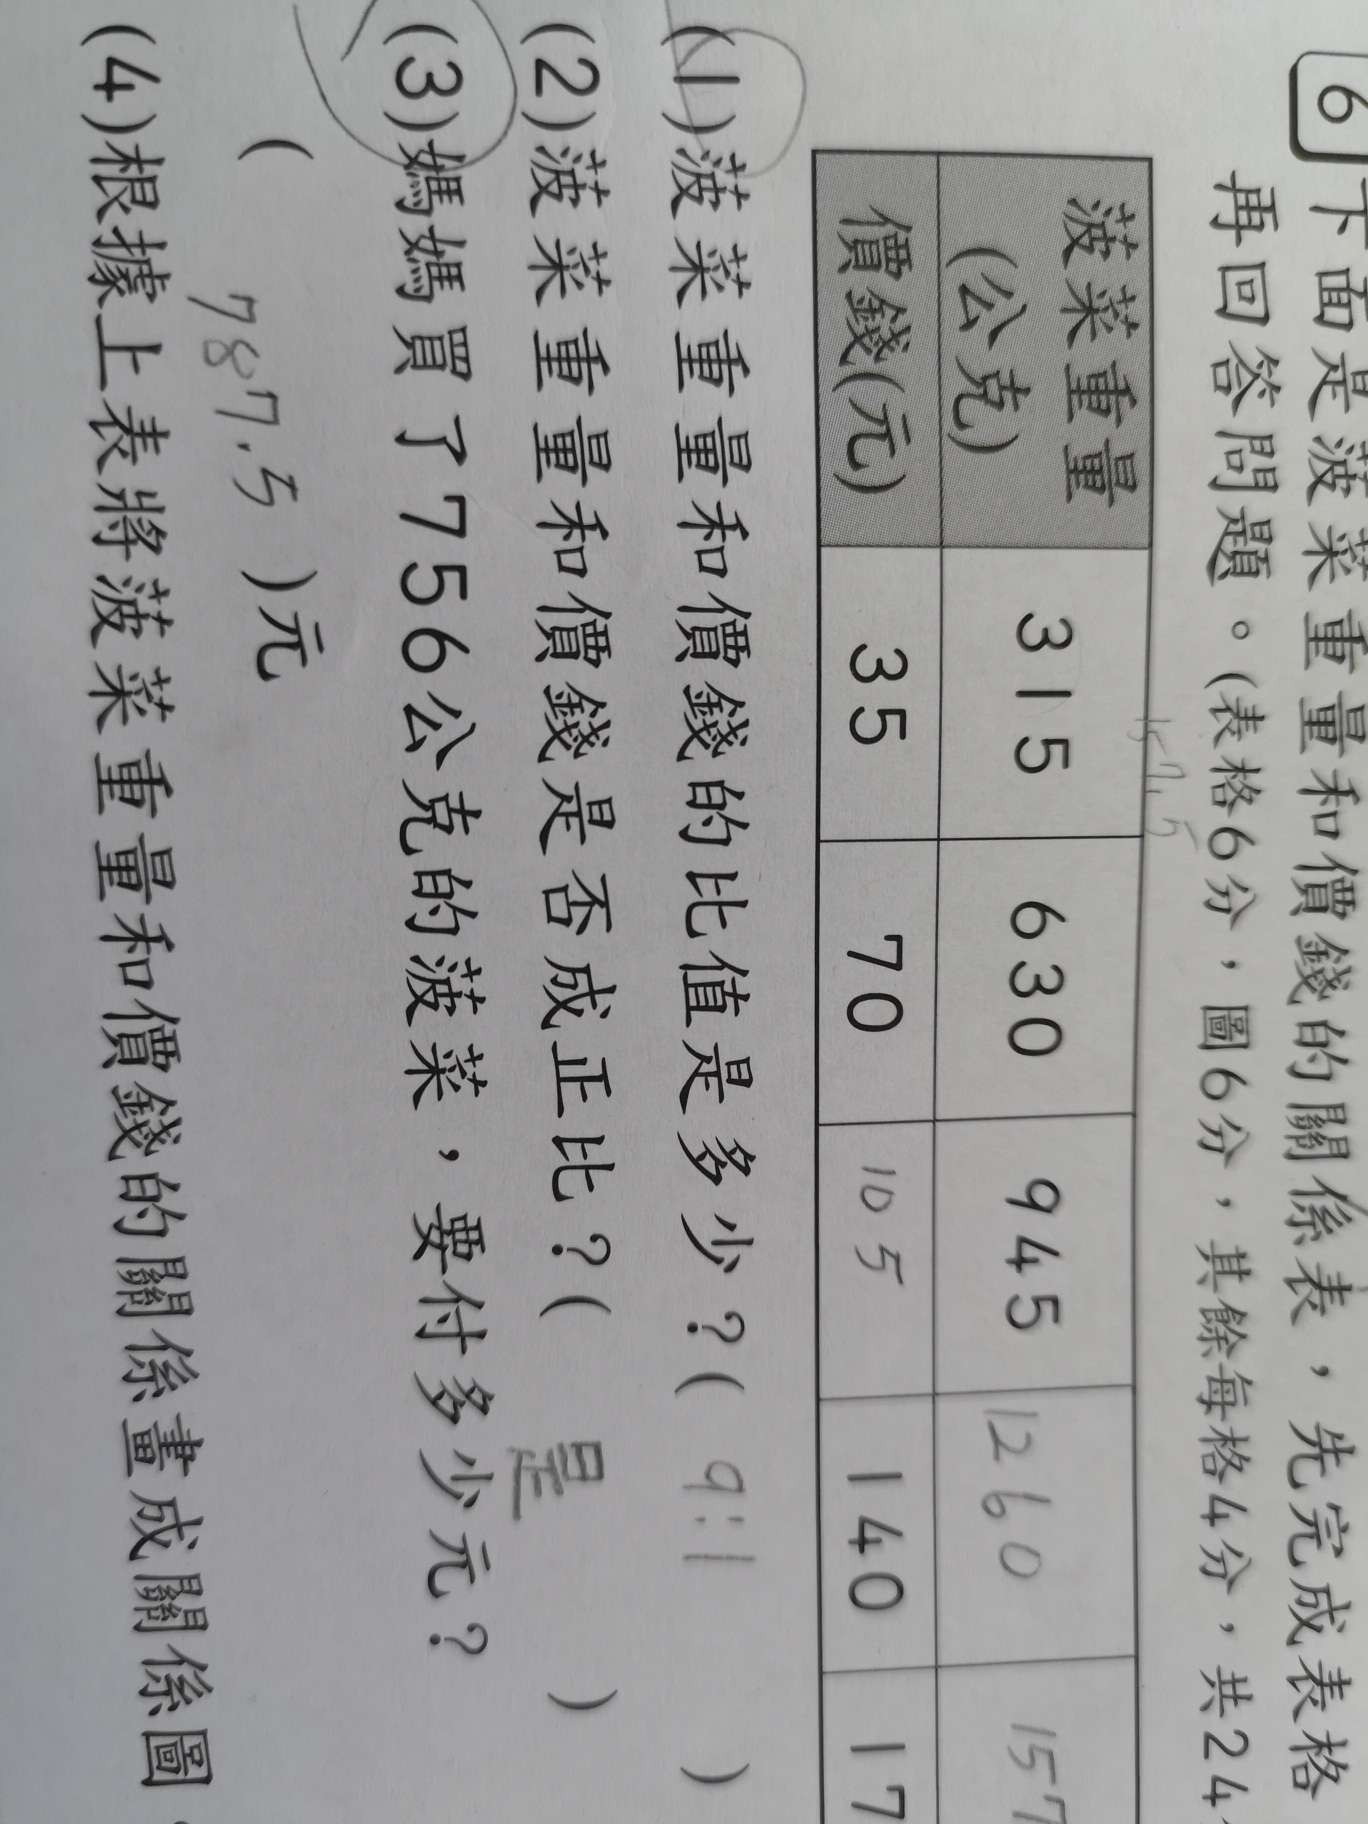 6 下面是菠菜重量和價錢的關係表，先完成表格
再回答問題。(表格6分，圖6分，其餘每格4分，共24
157.5
菠菜重量(公克) 315 630 945 1260 157
價錢(元) 35 70 105 140 17
(1)菠菜重量和價錢的比值是多少？( 9:1 )
(2)菠菜重量和價錢是否成正比？( 是 )
(3)媽媽買了756公克的菠菜，要付多少元？
( 787.5 )元
(4)根據上表將菠菜重量和價錢的關係畫成關係圖。